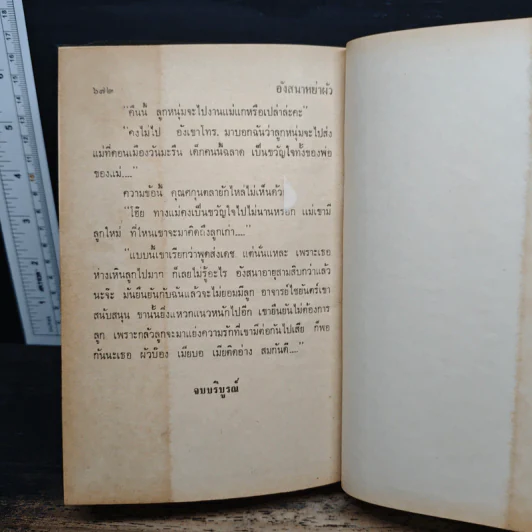 ๖๗๒ อังสนาหย่าผัว
“คืนนี้ ลูกหนุ่มจะไปงานแม่แกหรือเปล่าล่ะคะ”
“คงไม่ไป อังเขาโทร. มาบอกฉันว่าลูกหนุ่มจะไปส่ง
แม่ที่ดอนเมืองวันมะรืน เด็กคนนี้ฉลาด เป็นขวัญใจทั้งของพ่อ
ของแม่....”
ความข้อนี้ คุณตฤนตลายักไหล่ไม่เห็นด้วย
“โอ๊ย ทางแม่คงเป็นขวัญใจไปไม่นานหรอก แม่เขามี
ลูกใหม่ ที่ไหนเขาจะมาคิดถึงลูกเก่า....”
“แบบนี้เขาเรียกว่าพูดส่งเดช แต่นั่นแหละ เพราะเธอ
ห่างเหินลูกไปมาก ก็เลยไม่รู้อะไร อังสนาอายุสามสิบกว่าแล้ว
นะจ๊ะ มันยืนยันกับฉันแล้วจะไม่ยอมมีลูก อาจารย์ไชยันตร์เขา
สนับสนุน ขานั้นยิ่งแหวกแนวหนักไปอีก เขายืนยันไม่ต้องการ
ลูก เพราะกลัวลูกจะมาแย่งความรักที่เขามีต่อกันไปเสีย ก็พอ
กันนะเธอ ผัวบ๊อง เมียบอ เมียคิดอย่าง สมกันดี....”
จบบริบูรณ์